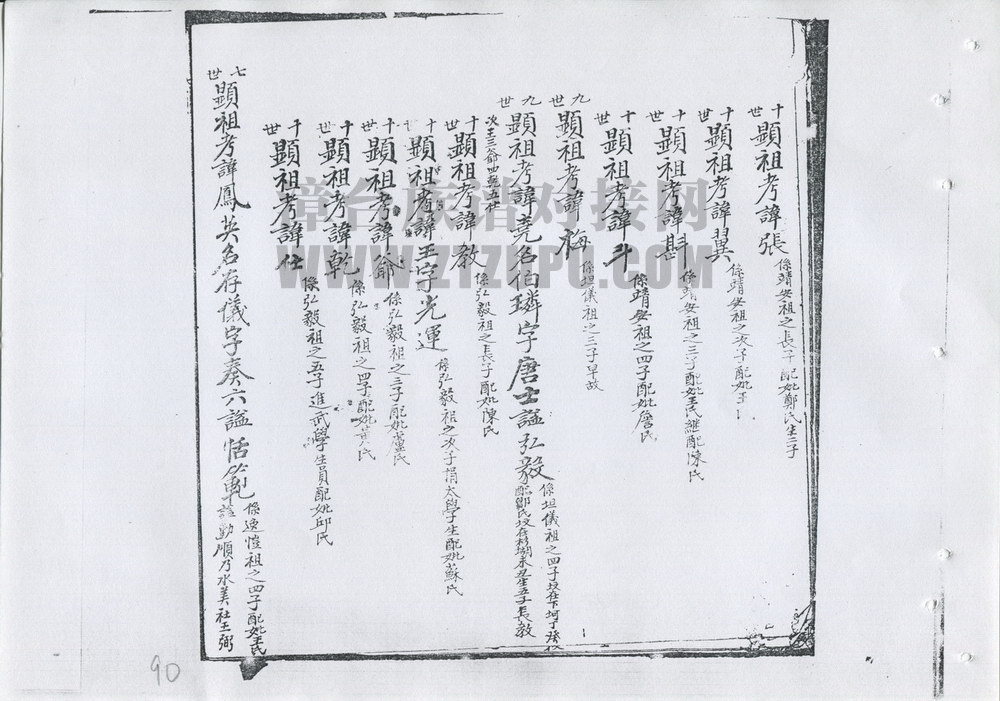 十世顯祖考諱張 係靖安祖之長子配妣鄭氏生二子
十世顯祖考諱翼 係靖安祖之次子配妣王
十世顯祖考諱斟 係靖安祖之三子配妣王氏繼配陳氏
十世顯祖考諱斗 係靖安祖之四子配妣詹氏
九世顯祖考諱梅 係坦儀祖之三子早故
九世顯祖考諱堯名伯璘字唐士諡弘毅 係坦儀祖之四子坟在下坷丁
配鄭氏坟在 未丑生五子長教
次王三爺四乾五仕
十世顯祖考諱教 係弘毅祖之長子配妣陳氏
十世顯祖考諱王字光運 係弘毅祖之次子捐太學生配妣蘇氏
十世顯祖考諱爺 係弘毅祖之三子配妣盧氏
十世顯祖考諱乾 係弘毅祖之四子配妣黃氏
十世顯祖考諱仕 係弘毅祖之五子進武學生員配妣邱氏
七世顯祖考諱鳳英名存儀字奏六諡恬範 係逸愷祖之四子配妣王氏
諡勤順乃水美社王弼
章台族谱对接网
WWW.ZTZUPU.COM
90